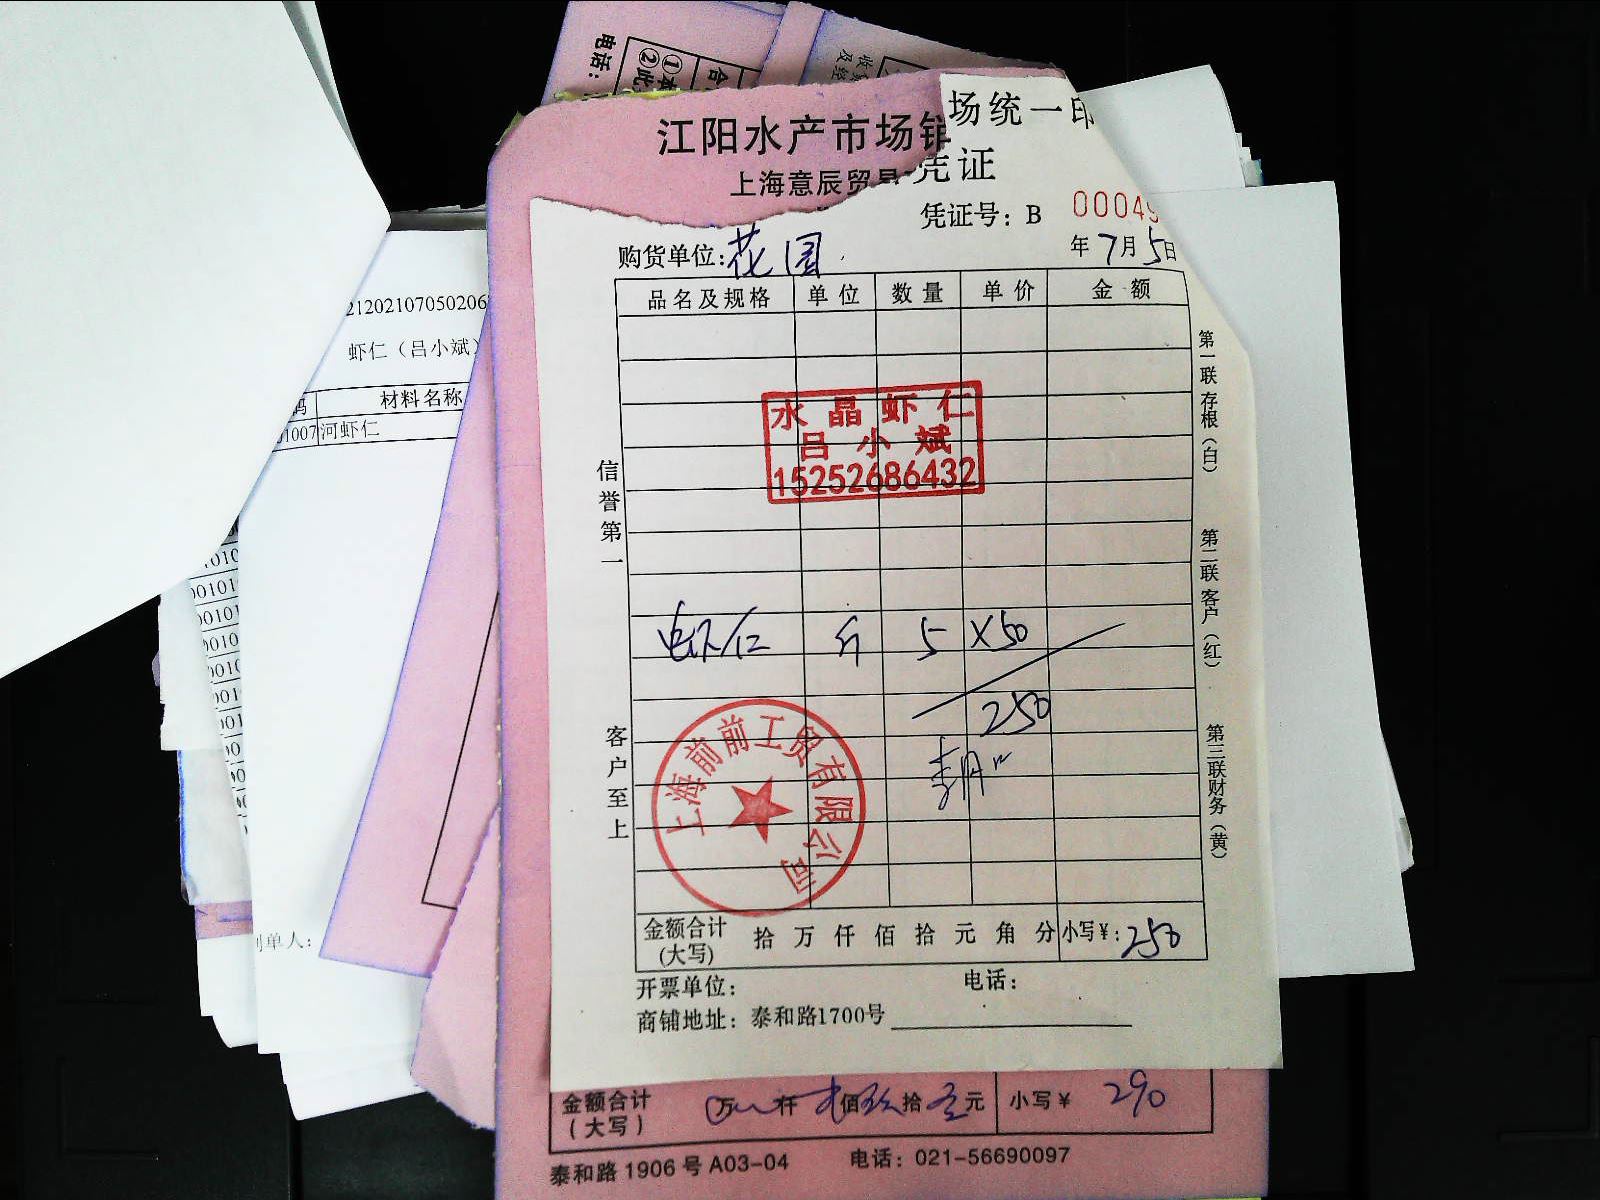 电话：
①本
②此
合
收
及经
江阳水产市场销
上海意辰贸易
场统一印
凭证
凭证号：B 00049
购货单位：花园
年7月5日
品名及规格 单位 数量 单价 金额
水晶虾仁
吕小斌
15252686432
虾仁 斤 5 X50
250
上海前前工贸有限公司
金额合计(大写) 拾 万 仟 佰 拾 元 角 分 小写¥：250
开票单位： 电话：
商铺地址：泰和路1700号
信誉第一
客户至上
第一联 存根（白）
第二联 客户（红）
第三联 财务（黄）
金额合计(大写) 万 仟 佰 拾 元 小写¥ 290
泰和路1906号A03-04 电话：021-56690097
21202107050206
虾仁（吕小斌）
码 材料名称
01007 河虾仁
制单人：